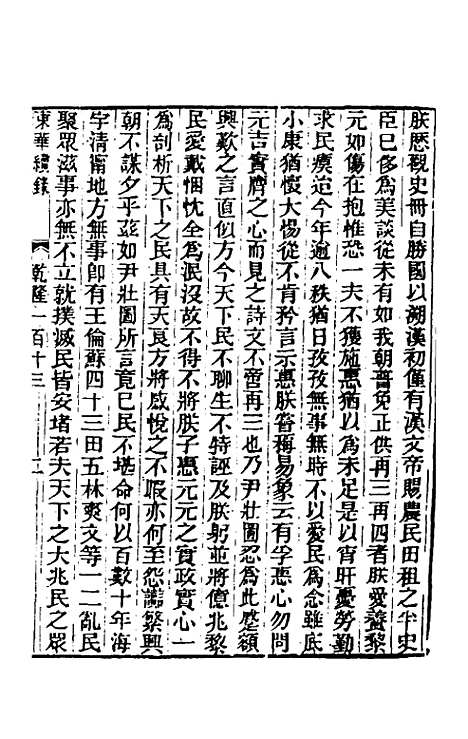 朕歷觀史冊自勝國以溯漢初僅有漢文帝賜農民田租之半史
臣已侈為美談從未有如我朝普免正供再三再四者朕愛養黎
元如傷在抱惟恐一夫不獲施惠猶以為未足是以宵旰憂勞勤
求民瘼迨今年逾八秩猶日孜孜無事無時不以愛民為念雖底
小康猶懷大惕從不肯矜言示惠朕嘗稱易象云有孚惠心勿問
元吉實膺之心而見之詩文不啻再三也乃尹壯圖忍為此蹙額
興歎之言直似方今天下民不聊生不特誣及朕躬並將億兆黎
民愛戴悃忱全為泯沒故不得不將朕子惠元元之實政實心一
為剖析天下之民具有天良方將感悅之不暇亦何至怨讟繁興
朝不謀夕乎茲如尹壯圖所言竟已民不堪命何以百數十年海
宇清甯地方無事卽有王倫蘇四十三田五林爽文等一二亂民
聚眾滋事亦無不立就撲滅民皆安堵若夫天下之大兆民之眾
東華續錄 乾隆一百十三